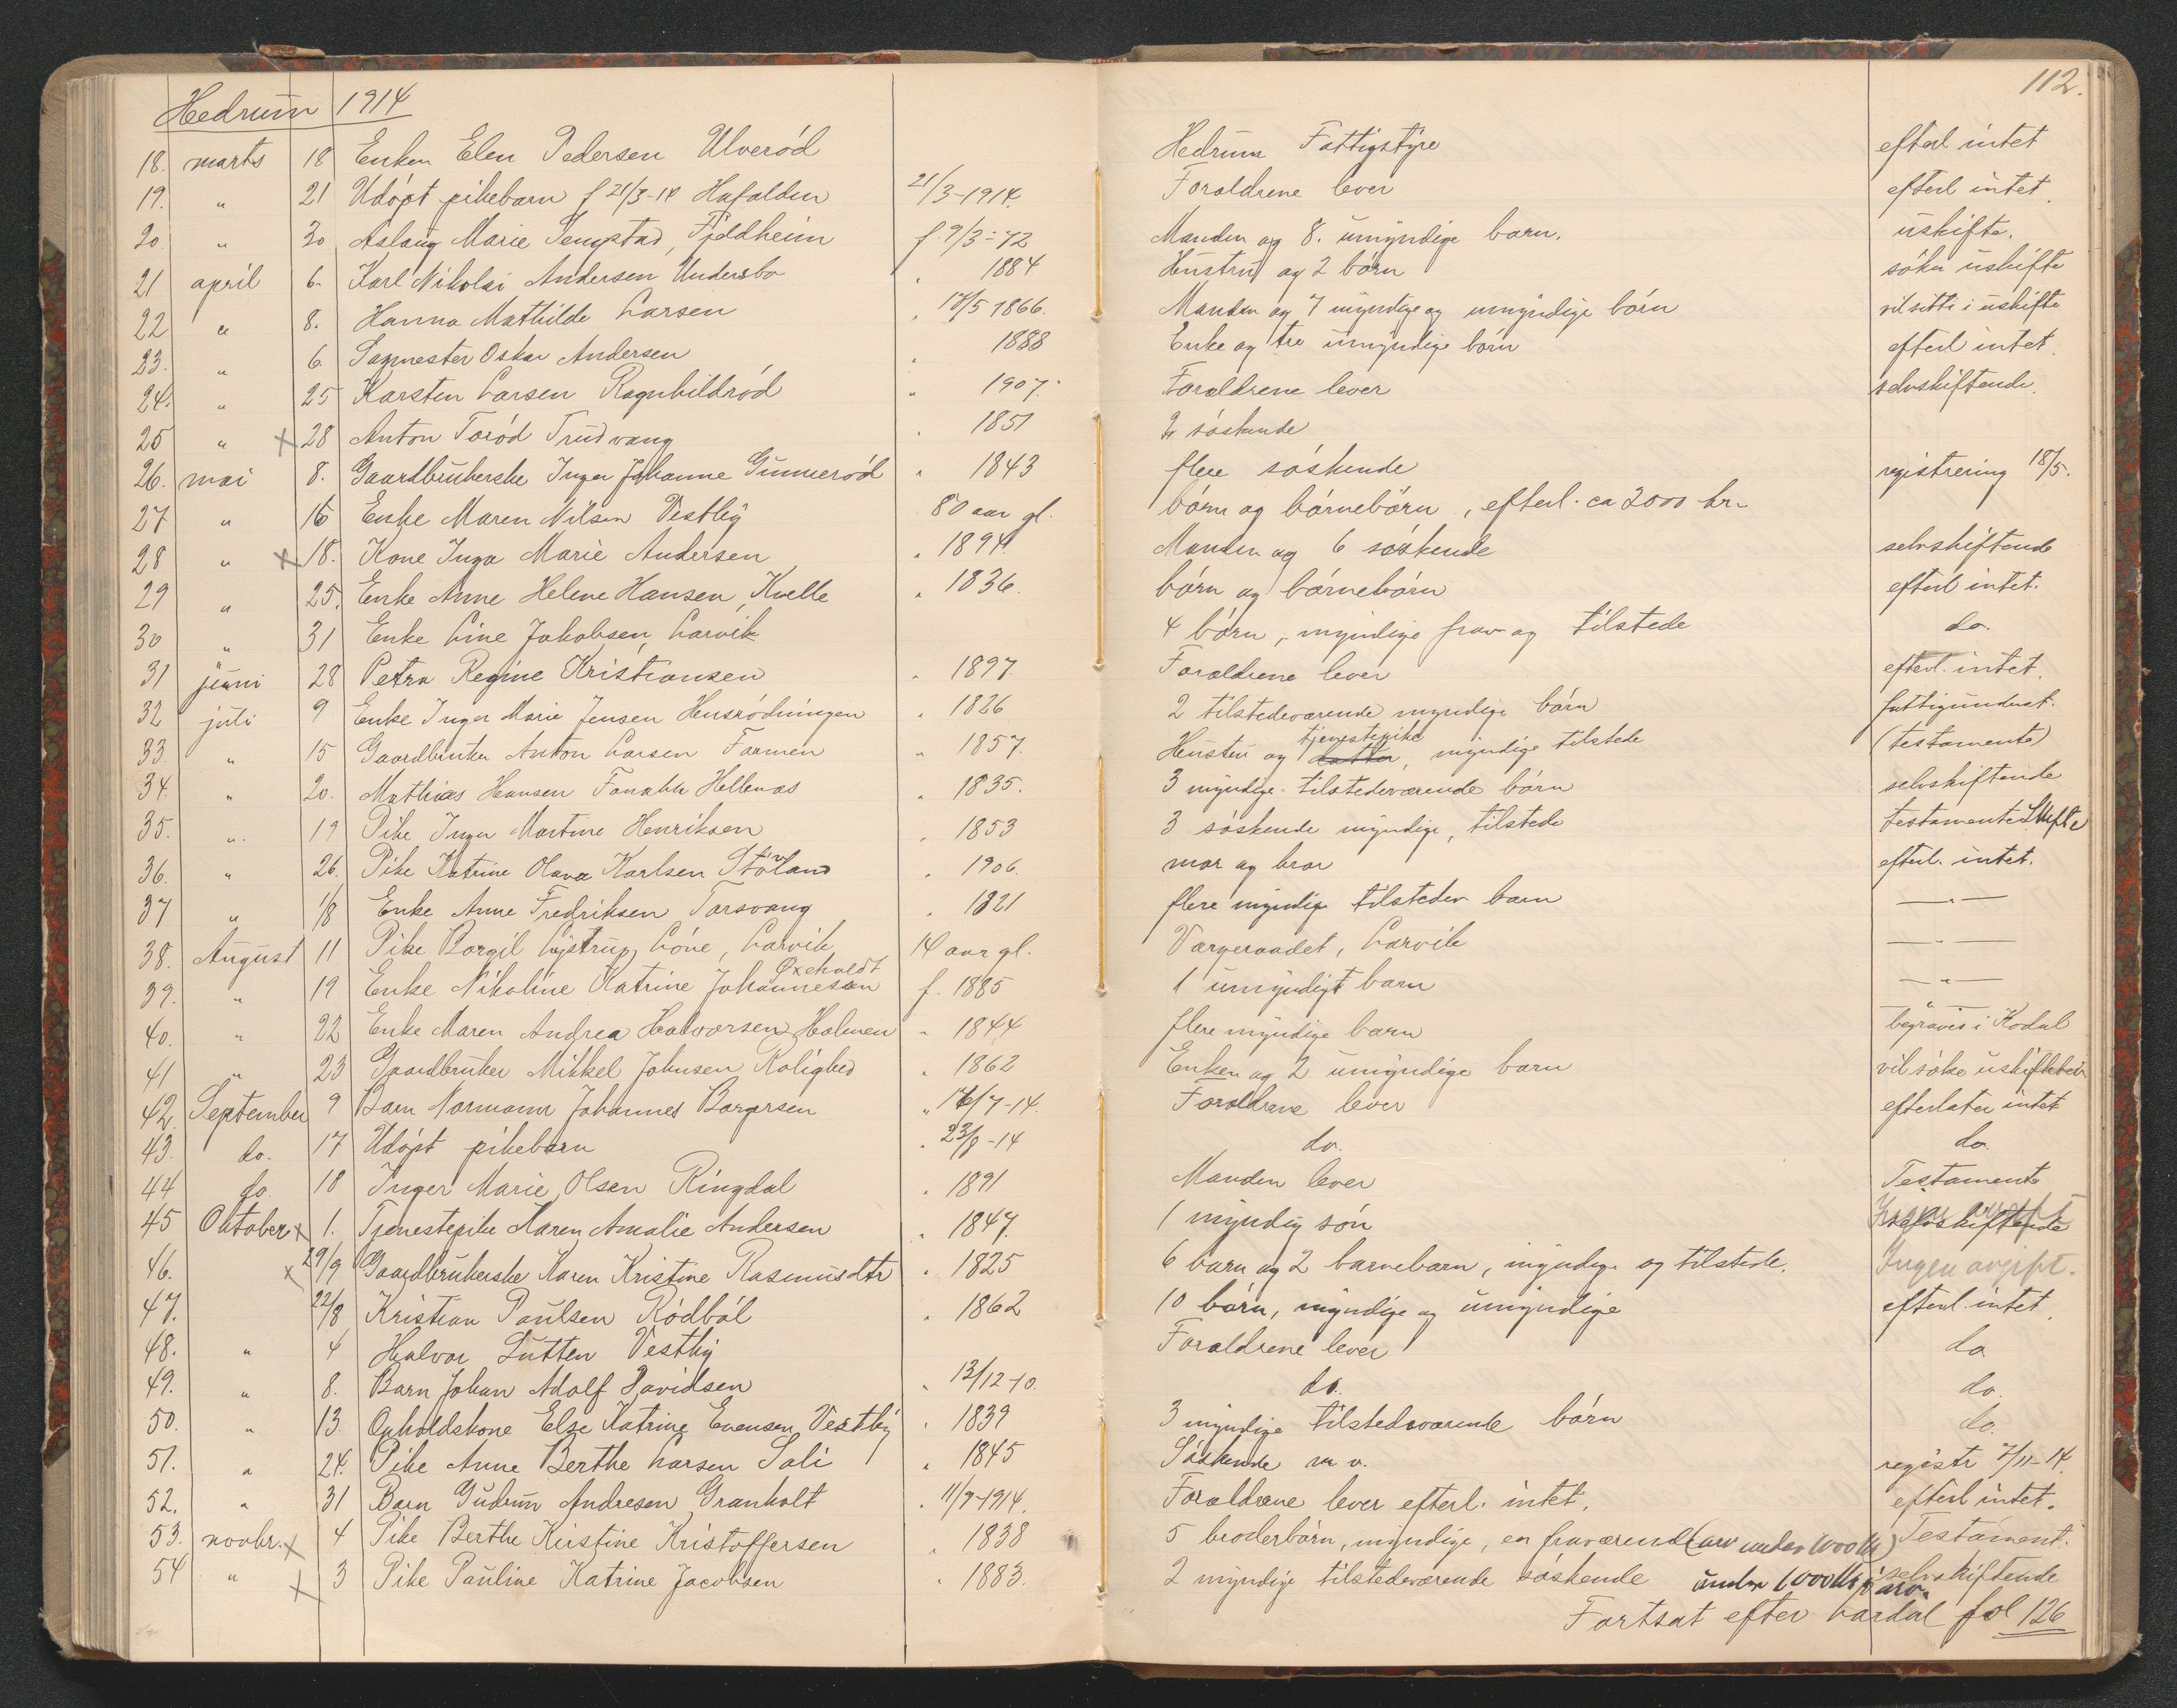 112.
Hedrum 1914
18. marts 18 Enken Elen Pedersen Ulveród Hedrum Fattigstyre efterl intet
19. " 21 Udópt pikebarn f 21/3-14 Hafalden 21/3-1914. Foraldrene lever efterl intet.
20. " 30 Aslaug Marie Jempstad, Fjeldheim f. 9/3-72 Manden og 8. umyndige barn. uskifte.
21 april 6. Karl Nikolai Andersen Undersbo " 1884 Hustru og 2 börn söker uskifte
22 " 8. Hanna Mathilde Larsen " 17/5 1866. Manden og 7 myndige og umyndige börn vil sitti i uskifte
23. " 6. Sagmester Oskar Andersen " 1888 Enke og tre umyndige börn efterl intet.
24. " 25 Karsten Larsen Ragnhildröd " 1907. Foraldrene lever selvskiftende.
25 " x 28 Anton Toröd Trudvang " 1851 2 söskende
26. mai 8. Gaardbrukerske Inger Johanne Gunneröd " 1843 flere söskende registrering 18/5.
27 " 16 Enke Maren Nilsen Vestby 80 aar gl. börn og börnebörn, efterl. ca 2000 kr.
28 " x 18. Kone Inga Marie Andersen " 1894. Manden og 6 söskende selvskiftende
29 " 25. Enke Anne Helene Hansen, Kvelle " 1836. börn og börnebörn efterl intet.
30 " 31 Enke Line Jakobsen, Larvik 4 börn, myndige frav og tilstede do.
31 juni 28 Petra Regine Kristiansen " 1897. Foraldrene lever efterl. intet.
32 juli 9 Enke Inger Marie Jensen Hensrödningen " 1826 2 tilstedevarende myndige börn fattigunderst.
33. " 15 Gaardbruker Anton Larsen Farmen " 1857. Hustru og datter tjenestepike, myndige tilstede (testamente)
34. " 20. Mathias Hansen Hellenas " 1835. 3 myndige tilstedevarende börn selvskiftende
35. " 19 Pike Inger Martine Henriksen " 1853 3 söskende myndige, tilstede testamente Skifte
36. " 26. Pike Katrine Olava Karlsen Stövland " 1906. mor og bror efterl. intet.
37 " 1/8 Enke Anne Fredriksen Torsvang " 1821 flere myndige tilstedev barn — " —
38. August 11 Pike Borgil Lystrup, Löve, Larvik 14 aar gl. Vargeraadet, Larvik — " —
39. " 19 Enke Nikoline Katrine Johannessen Oxeholdt f. 1885 1 umyndigt barn — " —
40. " 22 Enke Maren Andrea Halvorsen, Holmen " 1844 flere myndige barn begraves i Kodal
41 " 23 Gaardbruker Mikkel Johnsen Rolighed " 1862 Enken og 2 umyndige barn vil söke uskiftebev
42. September 9 Barn Normann Johannes Borgersen " 16/7-14. Foraldrene lever efterlater intet
43. do. 17 Udöpt pikebarn " 23/8-14 do. do.
44 do. 18 Inger Marie Olsen Ringdal " 1891 Manden lever Testament
45 Oktober x 1. Tjenestepike Karen Amalie Andersen " 1847. 1 myndig sön selvskiftende Ingen avgift
46. x 29/9 Gaardbrukerske Karen Kristine Rasmusdtr " 1825 6 barn og 2 barnebarn, myndige og tilstede. Ingen avgift.
47. 22/8 Kristian Paulsen Rödböl " 1862 10 börn, myndige og umyndige efterl. intet.
48. " 4 Halvor Lutten Vestby Foraldrene lever do
49. " 8. Barn Johan Adolf Davidsen " 13/12-10. do. do.
50. " 13. Opholdskone Else Katrine Evensen Vestby " 1839 3 myndige tilstedevarende börn do.
51. " 24. Pike Anne Berthe Larsen Soli " 1845 Söskende m v. registr 7/11-14.
52. " 31 Barn Gudrun Andresen Granholt " 11/9-1914. Foraldrene lever efterl. intet. efterl intet.
53. novbr. x 4 Pike Berthe Kirstine Kristoffersen " 1838 5 broderbörn, myndige, en fraværende (arv under 1000 Kr) Testament.
54 " x 3 Pike Pauline Katrine Jacobsen " 1883. 2 myndige tilstedeværende söskende under 1000 Kr i arv. selvskiftende
Fortsat efter Lardal fol 126